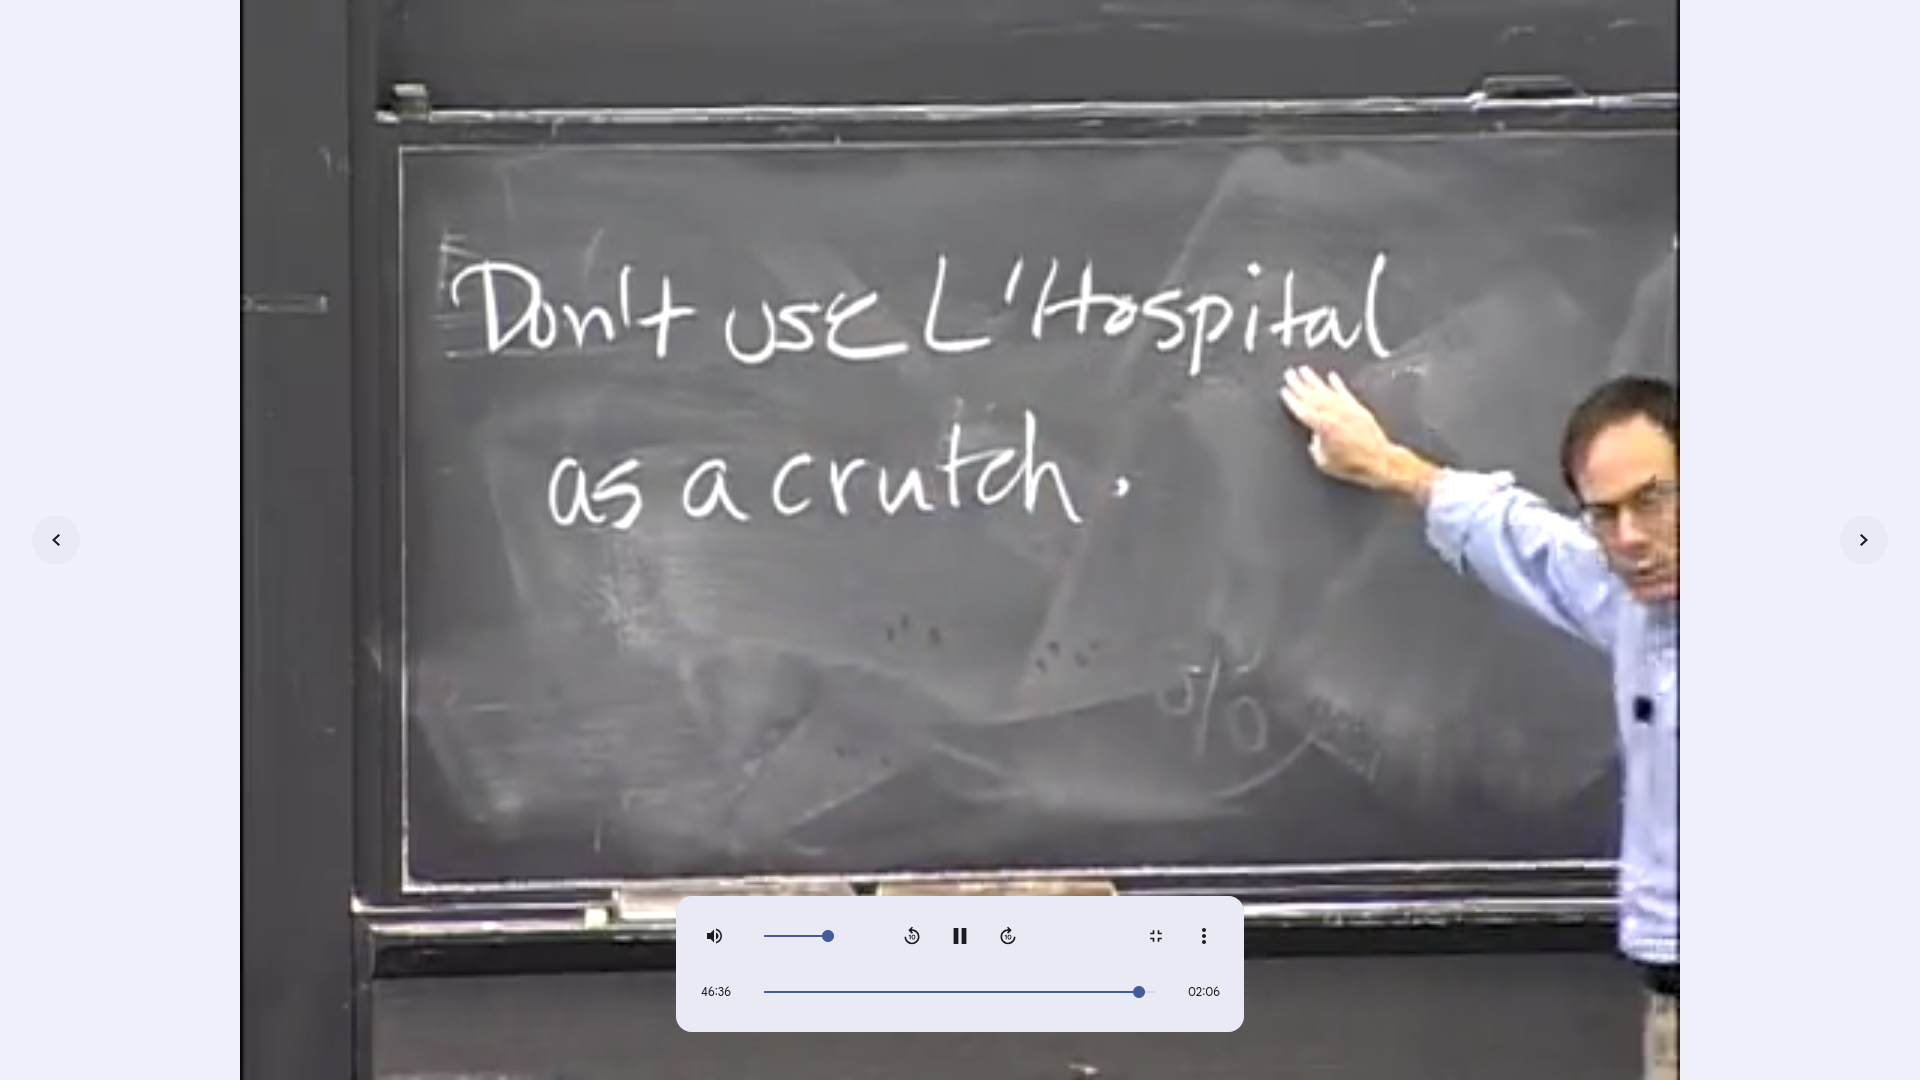 Don't use L'Hospital
as a crutch.
0/0
10
10
46:36
02:06